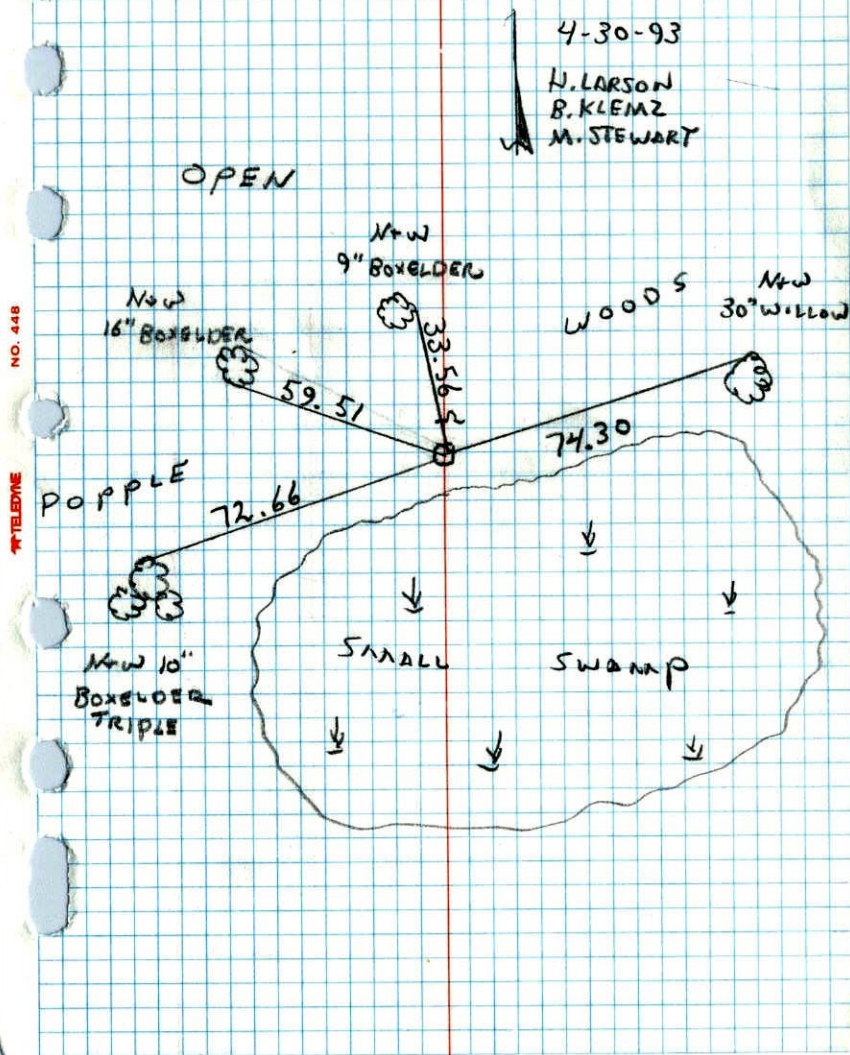 4-30-93
H. LARSON
B. KLEMZ
M. STEWART
OPEN
N+W
9" BOXELDER
N+W
16" BOXELDER
WOODS
N+W
30" WILLOW
NO. 448
33.56
59.51
74.30
POPPLE
72.66
TELEDYNE
N+W 10"
BOXELDER
TRIPLE
SMALL SWAMP